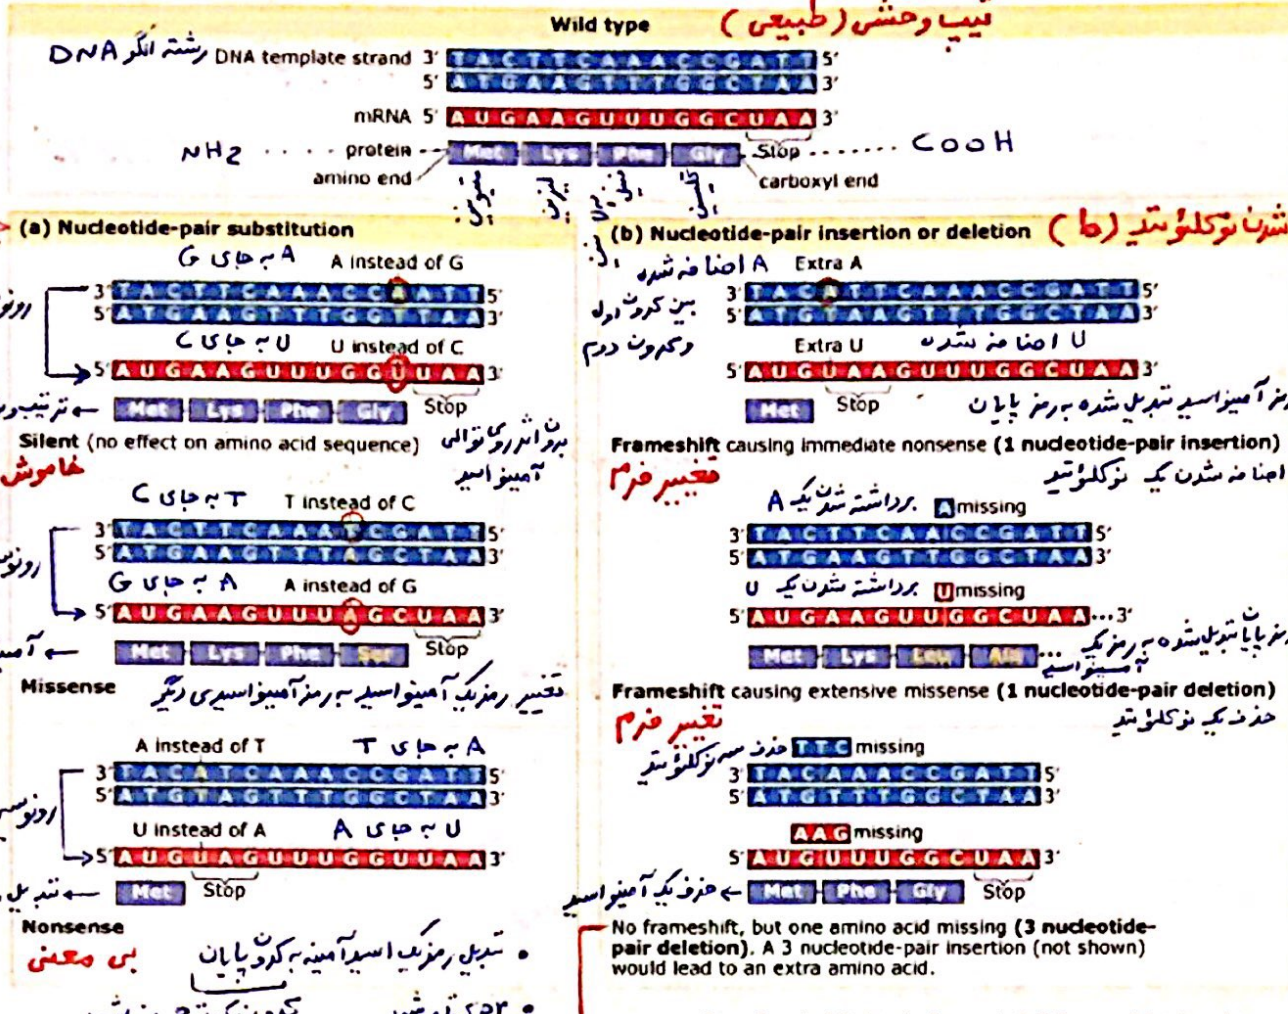 Wild type تیپ وحشی (طبیعی)
رشته الگو DNA DNA template strand 3′ T A C T T C A A A C C G A T T 5′
5′ A T G A A G T T T G G C T A A 3′
mRNA 5′ A U G A A G U U U G G C U A A 3′
NH2 .... protein Met Lys Phe Gly Stop ....... COOH
amino end carboxyl end
(a) Nucleotide-pair substitution
A به جای G A instead of G
3′ T A C T T C A A A C C A A T T 5′
5′ A T G A A G T T T G G T T A A 3′
U به جای C U instead of C
5′ A U G A A G U U U G G U U A A 3′
Met Lys Phe Gly Stop
Silent (no effect on amino acid sequence)
بدون اثر روی توالی
آمینو اسید
خاموش
T به جای C T instead of C
3′ T A C T T C A A A T C G A T T 5′
5′ A T G A A G T T T A G C T A A 3′
A به جای G A instead of G
5′ A U G A A G U U U A G C U A A 3′
Met Lys Phe Ser Stop
Missense تغییر رمز یک آمینو اسید به رمز آمینو اسیدی دیگر
A instead of T A به جای T
3′ T A C A T C A A A C C G A T T 5′
5′ A T G T A G T T T G G C T A A 3′
U instead of A U به جای A
5′ A U G U A G U U U G G U U A A 3′
Met Stop
Nonsense
بی معنی
• تبدیل رمز یک اسید آمینه به کدون پایان
(b) Nucleotide-pair insertion or deletion شدن نوکلئوتید (b)
A اضافه شدن Extra A
بین کدون اول
و کدون دوم
3′ T A C A T T C A A A C C G A T T 5′
5′ A T G T A A G T T T G G C T A A 3′
Extra U U اضافه شدن
5′ A U G U A A G U U U G G C U A A 3′
Met Stop
رمز آمینو اسید تبدیل شده به رمز پایان
Frameshift causing immediate nonsense (1 nucleotide-pair insertion)
تغییر فرم اضافه شدن یک نوکلئوتید
برداشته شدن یک A A missing
3′ T A C T T C A A C C G A T T 5′
5′ A T G A A G T T G G C T A A 3′
برداشته شدن یک U U missing
5′ A U G A A G U U G G C U A A ... 3′
Met Lys Leu Ala ...
رمز پایان تبدیل شده به رمز یک
آمینو اسید
Frameshift causing extensive missense (1 nucleotide-pair deletion)
تغییر فرم حذف یک نوکلئوتید
حذف سه نوکلئوتید T T C missing
3′ T A C A A A C C G A T T 5′
5′ A T G T T T G G C T A A 3′
A A G missing
5′ A U G U U U G G C U A A 3′
حذف یک آمینو اسید Met Phe Gly Stop
No frameshift, but one amino acid missing (3 nucleotide-
pair deletion). A 3 nucleotide-pair insertion (not shown)
would lead to an extra amino acid.